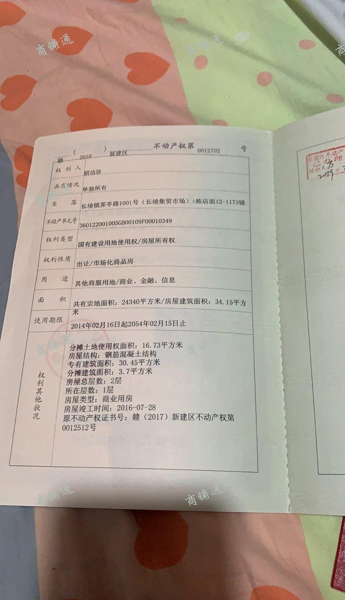 商铺通
商铺通
赣(2018)新建区不动产权第0012702号
权利人
共有情况 单独所有
坐落 长堎镇黄亭路1001号(长堎集贸市场)A栋店面12-1173铺
不动产单元号 360122001003GB00109F00010349
权利类型 国有建设用地使用权/房屋所有权
权利性质 出让/市场化商品房
用途 其他商服用地/商业、金融、信息
面积 共有宗地面积:24340平方米/房屋建筑面积:34.15平方米
使用期限 2014年02月16日起2054年02月15日止
权利其他状况
分摊土地使用权面积:16.73平方米
房屋结构:钢筋混凝土结构
专有建筑面积:30.45平方米
分摊建筑面积:3.7平方米
房屋总层数:2层
所在层数:1层
房屋类型:商业用房
房屋竣工时间:2016-07-28
原不动产权证书号:赣(2017)新建区不动产权第0012512号
商铺通
商铺通